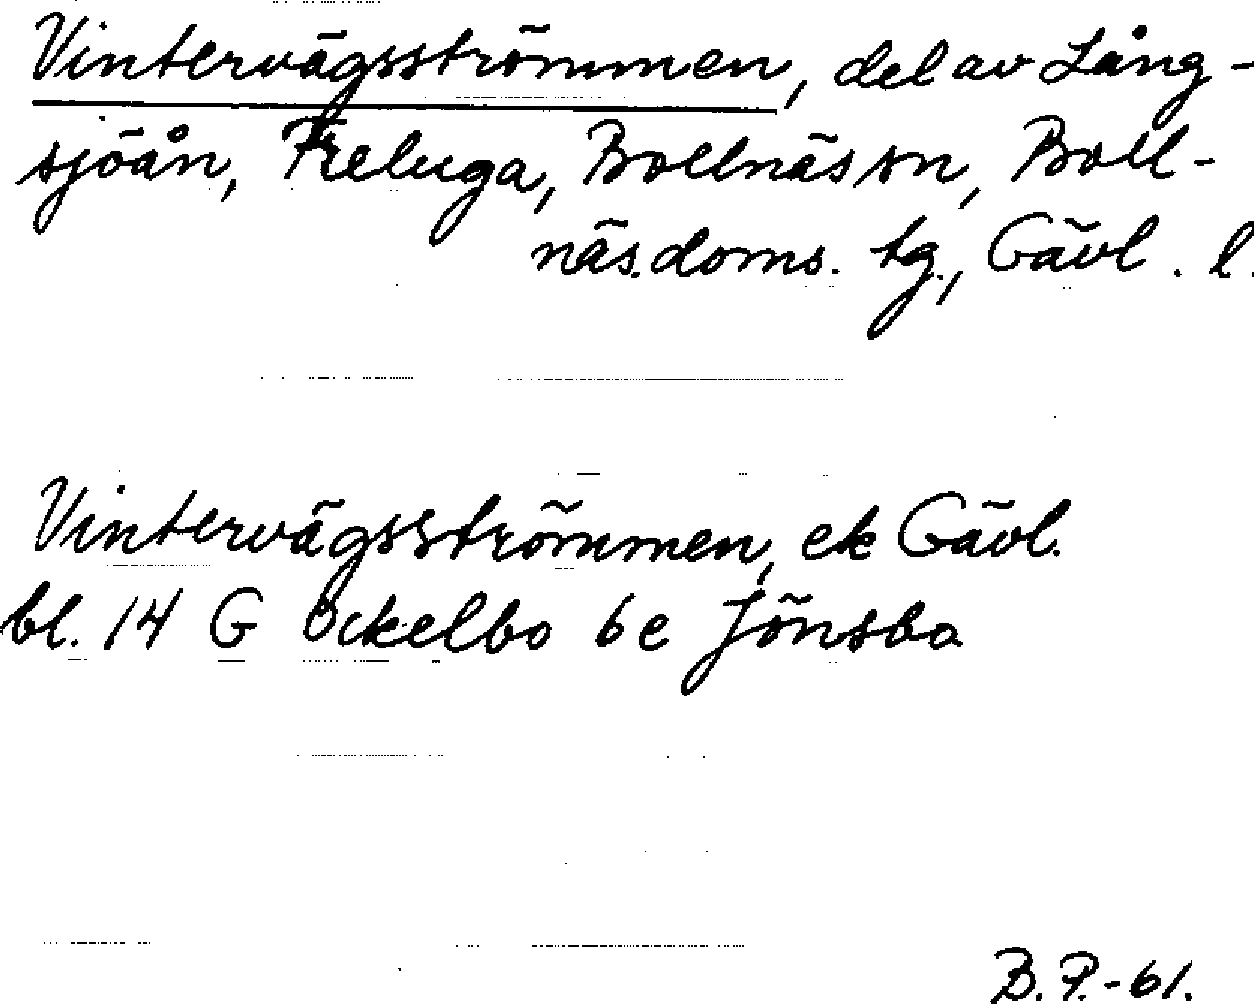 Vintervägsströmmen, del av Lång-
sjöån, Freluga, Bollnäs sn, Boll-
näs.doms. tg., Gävl. l.
Vintervägsströmmen, ek Gävl.
bl. 14 G Ockelbo 6e Jönsbo
B. P. - 61.